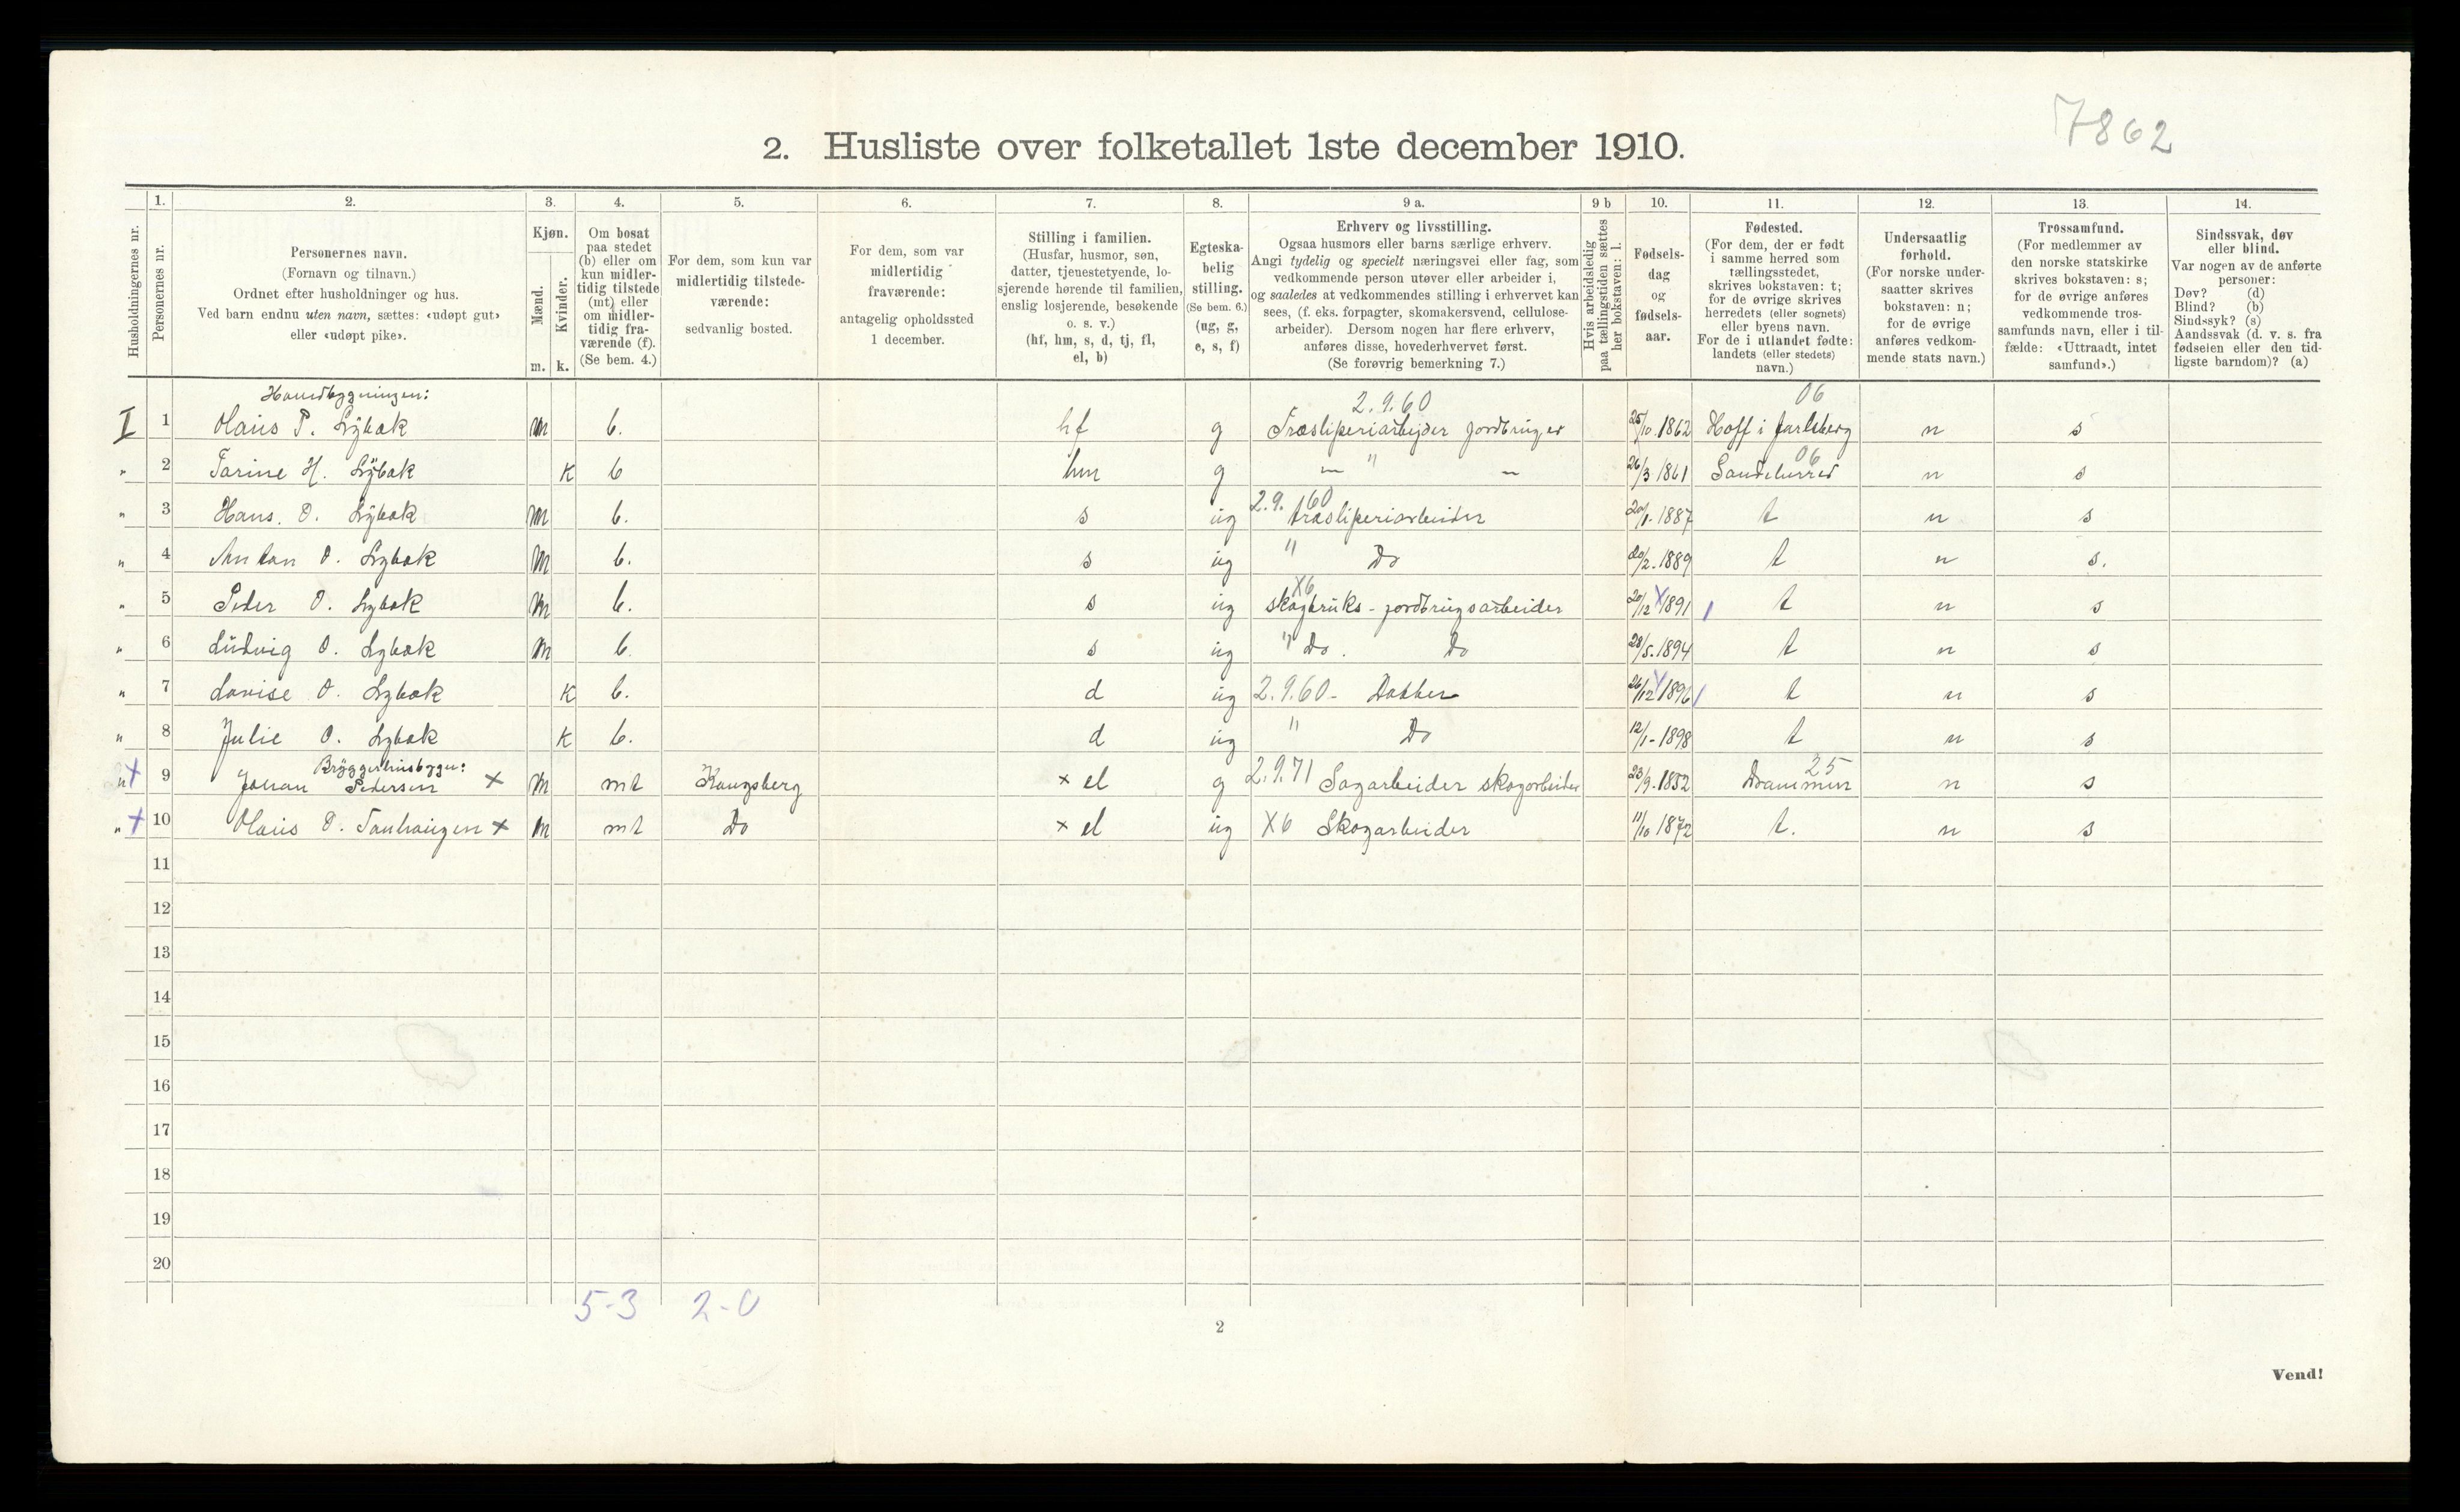 7862
2. Husliste over folketallet 1ste december 1910.
Husholdningernes nr.
1. Personernes nr.
2. Personernes navn.
(Fornavn og tilnavn.)
Ordnet efter husholdninger og hus.
Ved barn endnu uten navn, sættes: «udøpt gut»
eller «udøpt pike».
3. Kjøn.
Mænd. m.
Kvinder. k.
4. Om bosat
paa stedet
(b) eller om
kun midler-
tidig tilstede
(mt) eller
om midler-
tidig fra-
værende (f).
(Se bem. 4.)
5. For dem, som kun var
midlertidig tilstede-
værende:
sedvanlig bosted.
6. For dem, som var
midlertidig
fraværende:
antagelig opholdssted
1 december.
7. Stilling i familien.
(Husfar, husmor, søn,
datter, tjenestetyende, lo-
sjerende hørende til familien,
enslig losjerende, besøkende
o. s. v.)
(hf, hm, s, d, tj, fl,
el, b)
8. Egteska-
belig
stilling.
(Se bem. 6.)
(ug, g,
e, s, f)
9 a. Erhverv og livsstilling.
Ogsaa husmors eller barns særlige erhverv.
Angi tydelig og specielt næringsvei eller fag, som
vedkommende person utøver eller arbeider i,
og saaledes at vedkommendes stilling i erhvervet kan
sees, (f. eks. forpagter, skomakersvend, cellulose-
arbeider). Dersom nogen har flere erhverv,
anføres disse, hovederhvervet først.
(Se forøvrig bemerkning 7.)
9 b Hvis arbeidsledig
paa tællingstiden sættes
her bokstaven: l.
10. Fødsels-
dag
og
fødsels-
aar.
11. Fødested.
(For dem, der er født
i samme herred som
tællingsstedet,
skrives bokstaven: t;
for de øvrige skrives
herredets (eller sognets)
eller byens navn.
For de i utlandet fødte:
landets (eller stedets)
navn.)
12. Undersaatlig
forhold.
(For norske under-
saatter skrives
bokstaven: n;
for de øvrige
anføres vedkom-
mende stats navn.)
13. Trossamfund.
(For medlemmer av
den norske statskirke
skrives bokstaven: s;
for de øvrige anføres
vedkommende tros-
samfunds navn, eller i til-
fælde: «Uttraadt, intet
samfund».)
14. Sindssvak, døv
eller blind.
Var nogen av de anførte
personer:
Døv? (d)
Blind? (b)
Sindssyk? (s)
Aandssvak (d. v. s. fra
fødselen eller den tid-
ligste barndom)? (a)
Hovedbygningen: 2.9.60 06
I 1 Olaus P. Lybæk m b. hf g Træsliperiarbejder jordbruger 25/10.1862 Hoff i Jarlsberg n s
" 2 Tarine H. Lybæk k b hm g — " — 26/3 1861 Sandeherred 06 n s
" 3 Hans. O. Lybæk m b. s ug 2.9.60 træsliperiarbeider 20/1-1887 t n s
" 4 Anton O. Lybæk m b. s ug " Do 20/2-1889 t n s.
" 5 Peder O. Lybæk m b. s ug X6 skogbruks-jordbrugsarbeider 20/12 1891 t n s
" 6 Ludvig O. Lybæk m b. s ug " Do. Do 28/5-1894 t n s
" 7 Lovise O. Lybæk k b. d ug 2.9.60- Datter 26/12 1896 t n s
" 8 Julie O. Lybæk k b. d ug " Do 12/1-1898 t n s
Bryggerhusbygn: 25
" + 9 Johan Pedersen × m mt Kongsberg × el g 2.9.71 Sagarbeider skogarbeider 23/9-1852 Drammen n s
" + 10 Olaus O. × m mt Do × el ug X6 Skogarbeider 11/10 1872 t. n s
11
12
13
14
15
16
17
18
19
20
5-3 2-0
2
Vend!